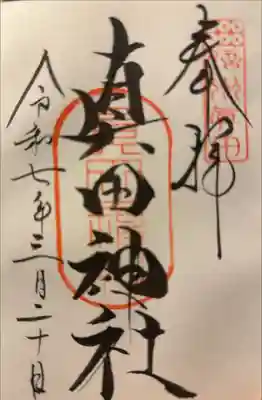 奉拝
真田神社
令和七年三月二十日